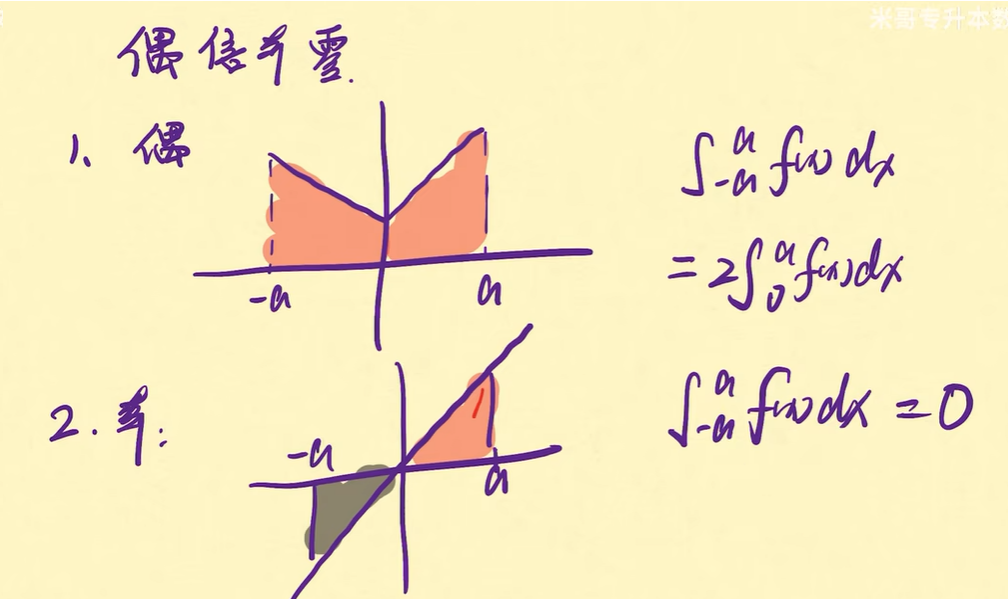 米哥专升本数
偶倍奇零.
1、偶
-a
a
∫_{-a}^{a} f(x) dx
= 2∫_{0}^{a} f(x)dx
2. 奇:
-a
a
∫_{-a}^{a} f(x)dx = 0